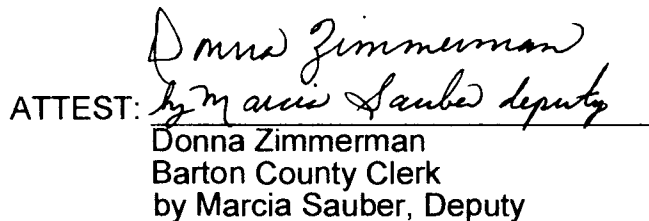 Donna Zimmerman
ATTEST: by Marcia Sauber deputy
Donna Zimmerman
Barton County Clerk
by Marcia Sauber, Deputy